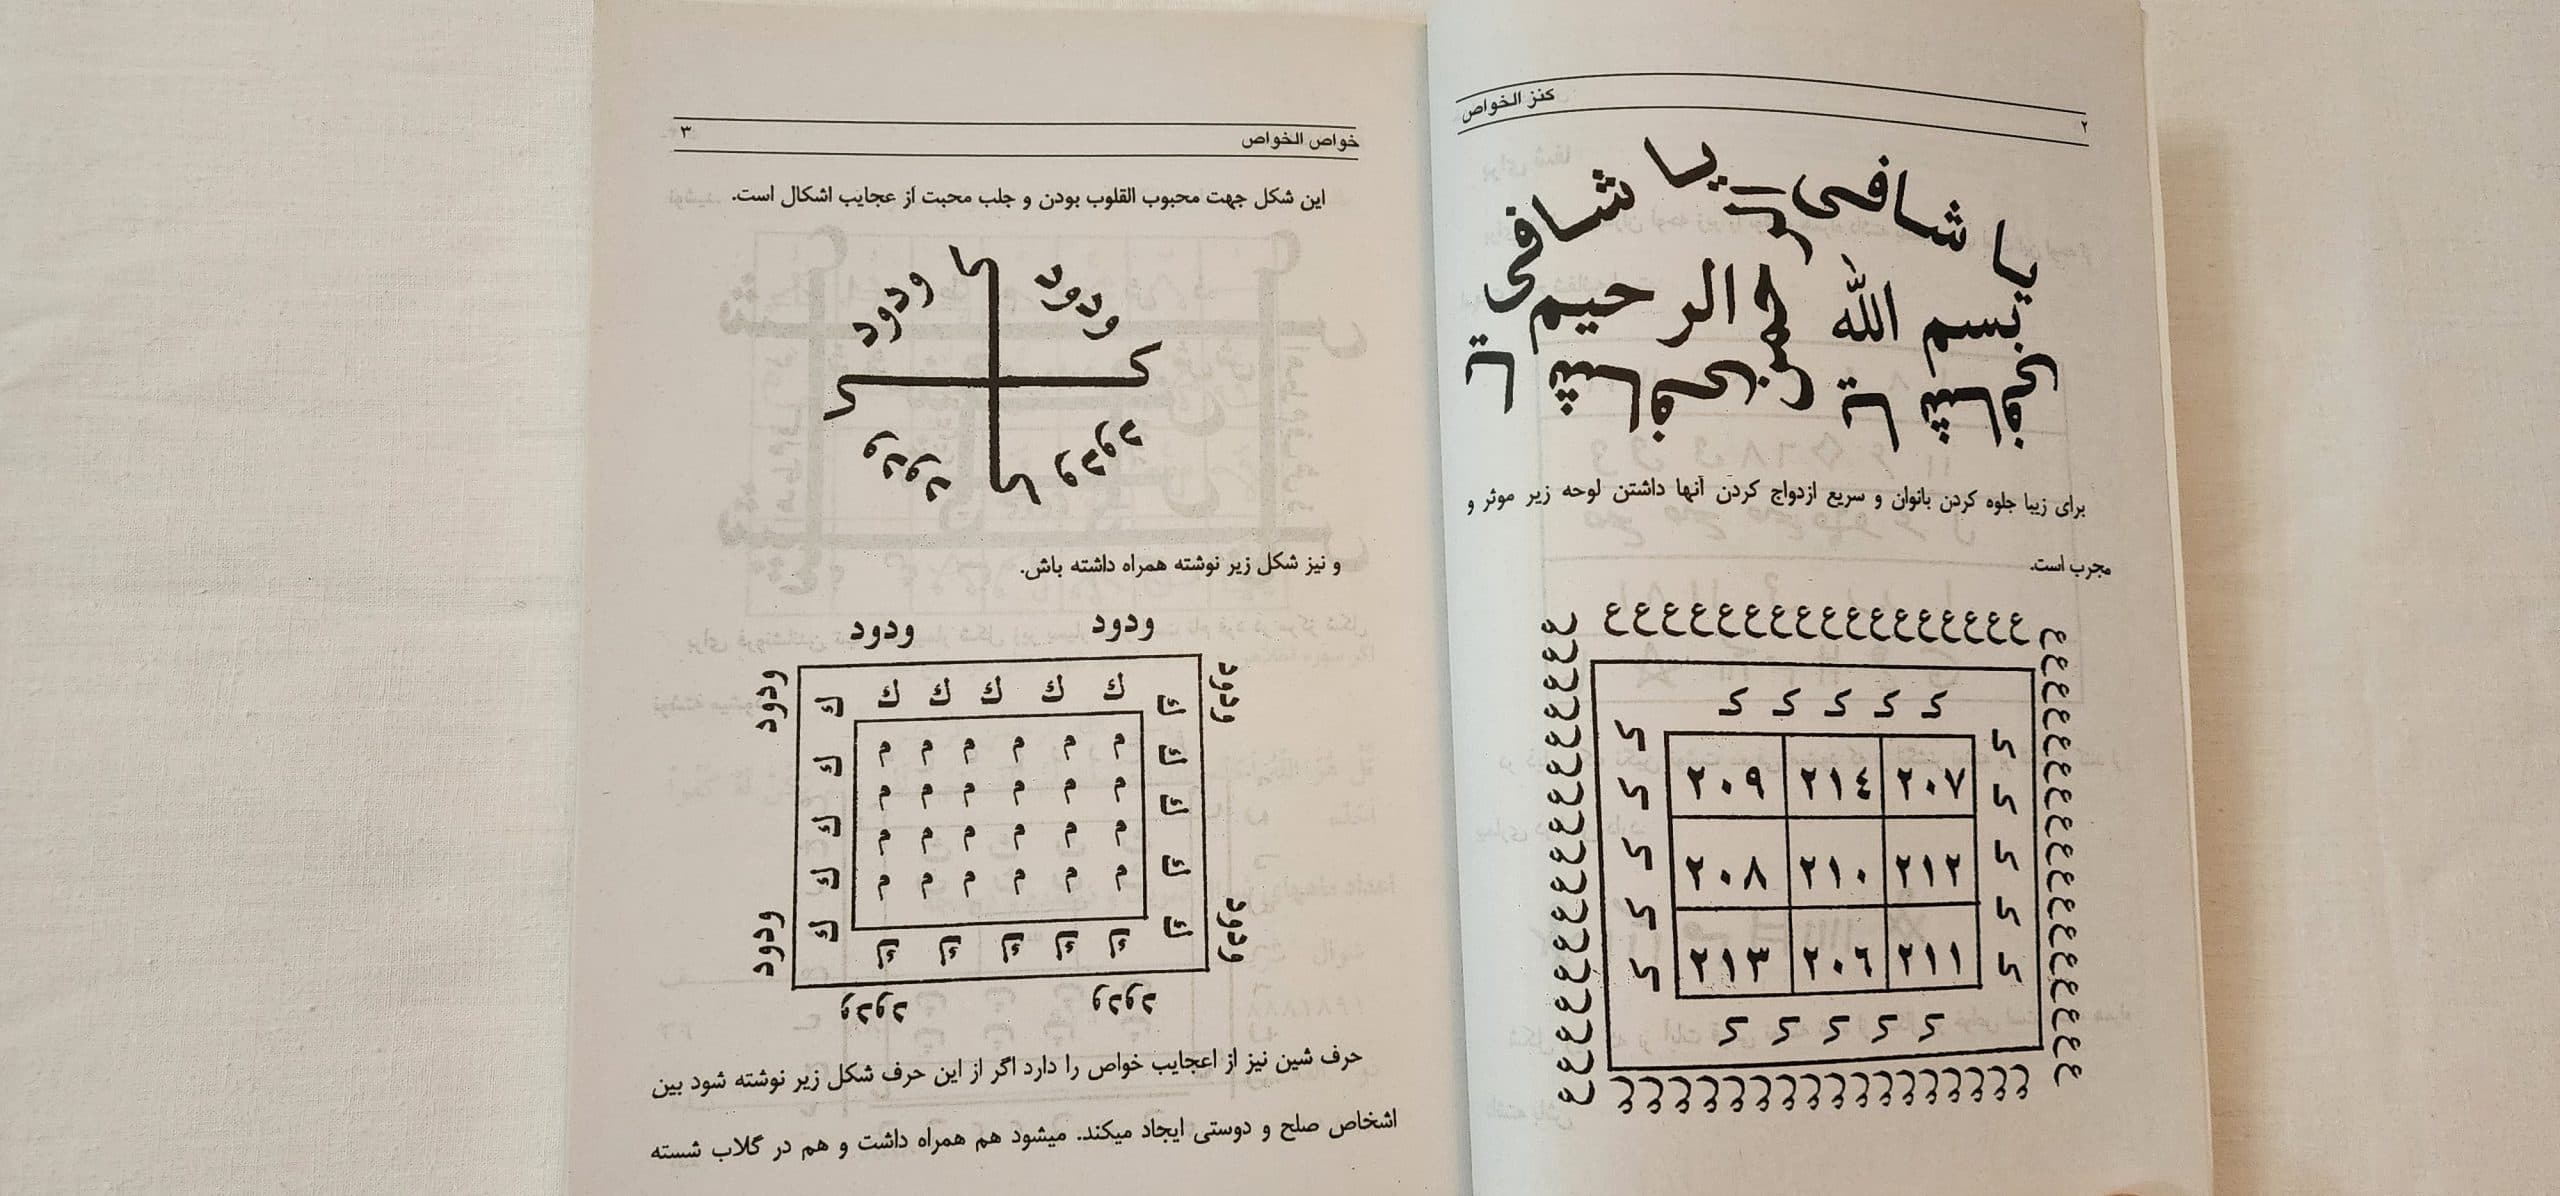 ٢ کنز الخواص
یا شافی یا شافی
بسم الله الرحمن الرحیم
یا شافی یا شافی
برای زیبا جلوه کردن بانوان و سریع ازدواج کردن آنها داشتن لوحه زیر موثر و
مجرب است.
ع ع ع ع ع ع ع ع ع ع ع ع ع ع ع ع
ک ک ک ک ک
٢٠٧ ٢١٤ ٢٠٩
٢١٢ ٢١٠ ٢٠٨
٢١١ ٢٠٦ ٢١٣
ک ک ک ک ک
خواص الخواص ٣
این شکل جهت محبوب القلوب بودن و جلب محبت از عجایب اشکال است.
ودود ودود
ودود ودود
و نیز شکل زیر نوشته همراه داشته باش.
ودود ودود
ودود ودود
ك ك ك ك ك
م م م م م م
م م م م م م
م م م م م م
م م م م م م
ك ك ك ك ك
ودود ودود
ودود ودود
حرف شین نیز از اعجایب خواص را دارد اگر از این حرف شکل زیر نوشته شود بین
اشخاص صلح و دوستی ایجاد میکند. میشود هم همراه داشت و هم در گلاب شسته